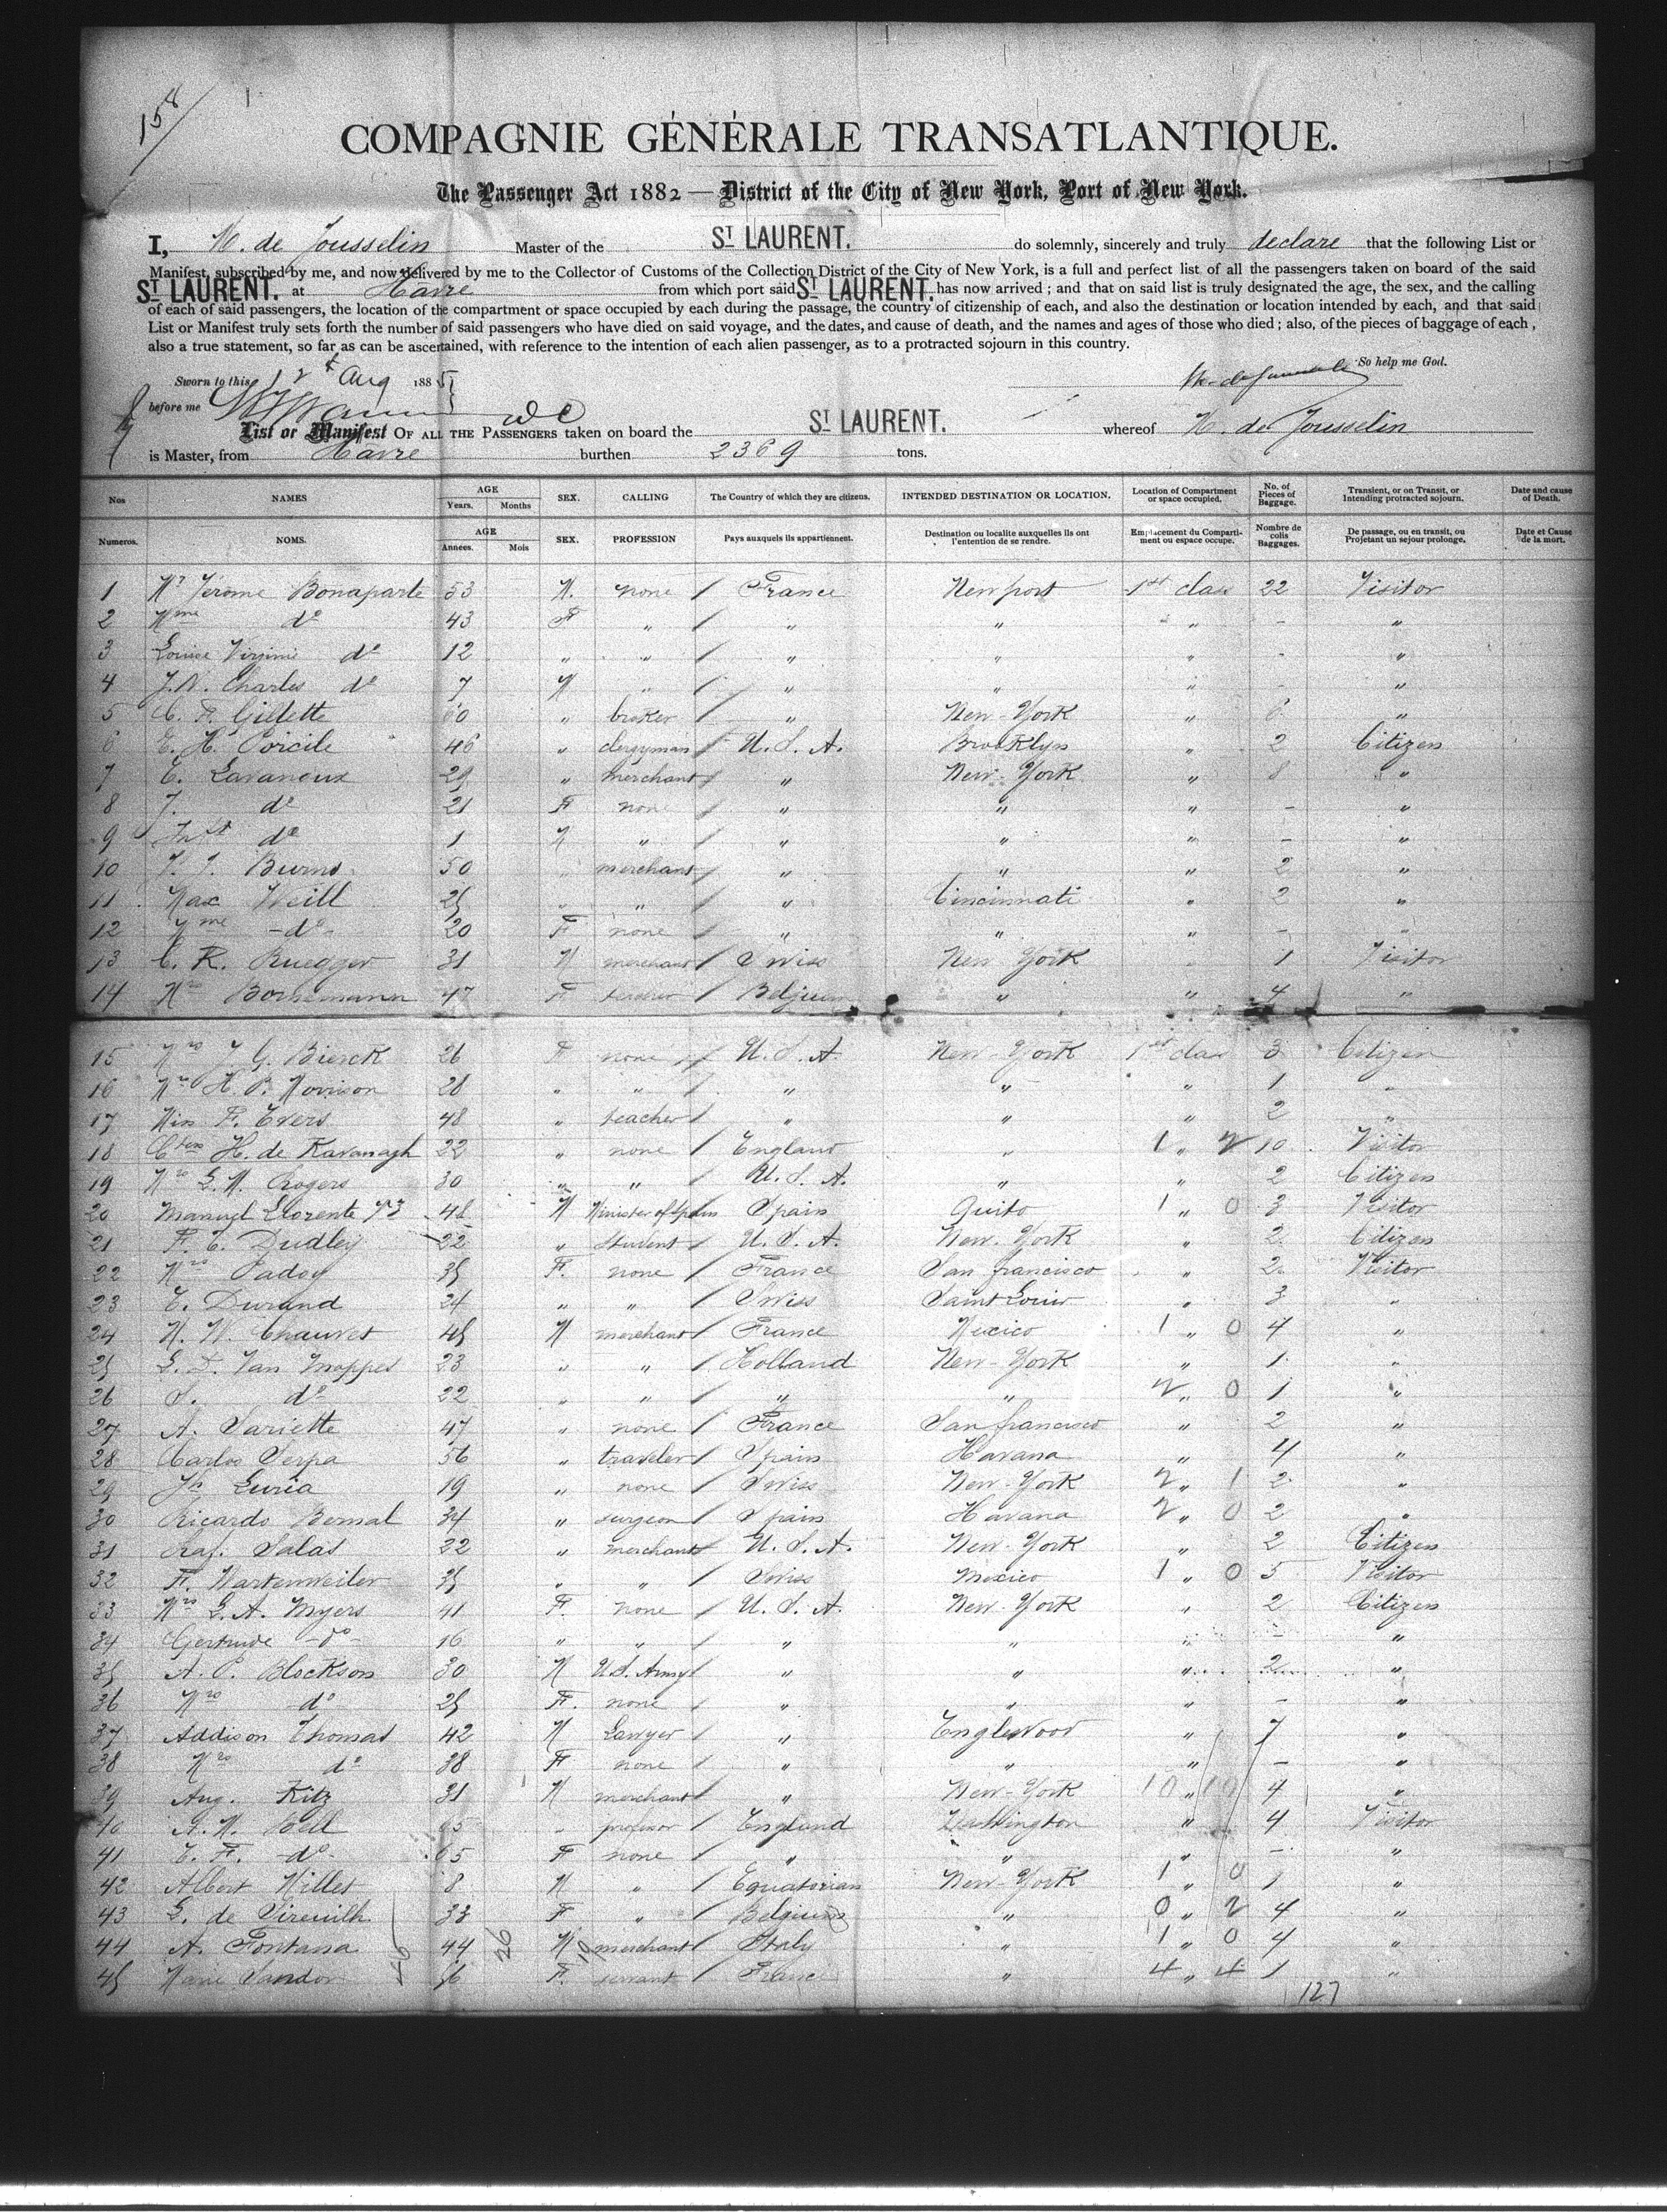 158
COMPAGNIE GÉNÉRALE TRANSATLANTIQUE.
The Passenger Act 1882 — District of the City of New York, Port of New York.
I, M. de Jousselin Master of the ST LAURENT. do solemnly, sincerely and truly declare that the following List or
Manifest, subscribed by me, and now delivered by me to the Collector of Customs of the Collection District of the City of New York, is a full and perfect list of all the passengers taken on board of the said
ST LAURENT. at Havre from which port said ST LAURENT. has now arrived ; and that on said list is truly designated the age, the sex, and the calling
of each of said passengers, the location of the compartment or space occupied by each during the passage, the country of citizenship of each, and also the destination or location intended by each, and that said
List or Manifest truly sets forth the number of said passengers who have died on said voyage, and the dates, and cause of death, and the names and ages of those who died ; also, of the pieces of baggage of each ,
also a true statement, so far as can be ascertained, with reference to the intention of each alien passenger, as to a protracted sojourn in this country.
So help me God.
Sworn to this 12t Aug 1885
before me
List or Manifest OF ALL THE PASSENGERS taken on board the ST LAURENT. whereof M. de Jousselin
is Master, from Havre burthen 2369 tons.
Nos NAMES AGE Years. Months SEX. CALLING The Country of which they are citizens. INTENDED DESTINATION OR LOCATION. Location of Compartment or space occupied. No. of Pieces of Baggage. Transient, or on Transit, or Intending protracted sojourn. Date and cause of Death.
Numeros. NOMS. AGE Années. Mois SEX. PROFESSION Pays auxquels ils appartiennent. Destination ou localite auxquelles ils ont l'entention de se rendre. Emplacement du Compartiment ou espace occupe. Nombre de colis Baggages. De passage, ou en transit, ou Projetant un sejour prolonge. Date et Cause de la mort.
1 Mr Jérome Bonaparte 53 M. none / France Newport 1st class 22 Visitor
2 Mme do 43 F " / " " " - "
3 Louise Virginie do 12 " " / " " " - "
4 J.N. Charles do 7 M " / " " " - "
5 C. F. Gillette 60 " broker / " New-York " 6 "
6 E. H. Porcile 46 " clergyman / U.S.A. Brooklyn " 2 Citizen
7 E. Lavanoux 29 " merchant / " New-York " 8 "
8 J. do 21 F none / " " " - "
9 Inft do 1 M " / " " " - "
10 T. J. Burns 50 " merchant / " " " 2 "
11 Max Weill 25 " " / " Cincinnati " 2 "
12 Mme -do- 20 F none / " " " - "
13 C. R. Ruegger 31 M merchant / Swiss New York " 1 Visitor
14 Bornemann 47 F / Belgium " " 4 "
15 Mrs J. G. Bierck 26 F none / U.S.A. New-York 1st class 3 Citizen
16 Mrs H. P. Morrison 28 " " / " " " 1 "
17 Miss F. Evers 48 " teacher / " " " 2 "
18 Ctess H. de Kavanagh 22 " none / England " 1 " 2 10 Visitor
19 Mrs G. M. Rogers 30 " " / U.S.A. " " 2 Citizen
20 Manuel Llorente 48 M Minister of Spain Spain Quito 1 " 0 3 Visitor
21 F. E. Dudley 22 " student / U.S.A. New-York " 2 Citizen
22 Mrs Padoy 35 F. none / France San francisco " 2 Visitor
23 E. Durand 24 " " / Swiss Saint Louis " 3 "
24 M. W. Chauvet 45 M merchant / France Mexico 1 " 0 4 "
25 G. D. Van Moppes 23 " " / Holland New-York " 1 "
26 S. do 22 " " / " " 2 " 0 1 "
27 A. Sariette 47 " none / France San francisco " 2 "
28 Carlos Serpa 56 " traveler / Spain Havana " 4 "
29 Luria 19 " none / Swiss New-York 2 " 1 2 "
30 Ricardo Bernal 34 " surgeon / Spain Havana 2 " 0 2 "
31 Raf. Salas 22 " merchant / U.S.A. New-York " 2 Citizen
32 F. Wartenweiler 35 " " / Swiss Mexico 1 " 0 5 Visitor
33 Mrs G. A. Myers 41 F. none / U.S.A. New-York " 2 Citizen
34 Gertrude -do- 16 " " / " " " - "
35 A. P. Blockson 30 M U.S. Army / " " " 2 "
36 Mrs do 25 F. none / " " " - "
37 Addison Thomas 42 M Lawyer / " Englewood " 7 "
38 Mrs do 38 F none / " " " - "
39 Aug. Kitz 31 M merchant / " New-York 10 " 4 "
40 A. M. Bell 65 " professor / England Washington " 4 Visitor
41 E. F. -do- 65 F none / " " " - "
42 Albert Millet 8 M " / Equatorian New-York 1 " 0 1 "
43 G. de Sireuilh 33 F " / Belgium " 0 " 2 4 "
44 A. Fontana 44 M merchant / Italy " 1 " 0 4 "
45 Marie Sandor F. servant / France " 4 " 4 1 "
46 26 19
127